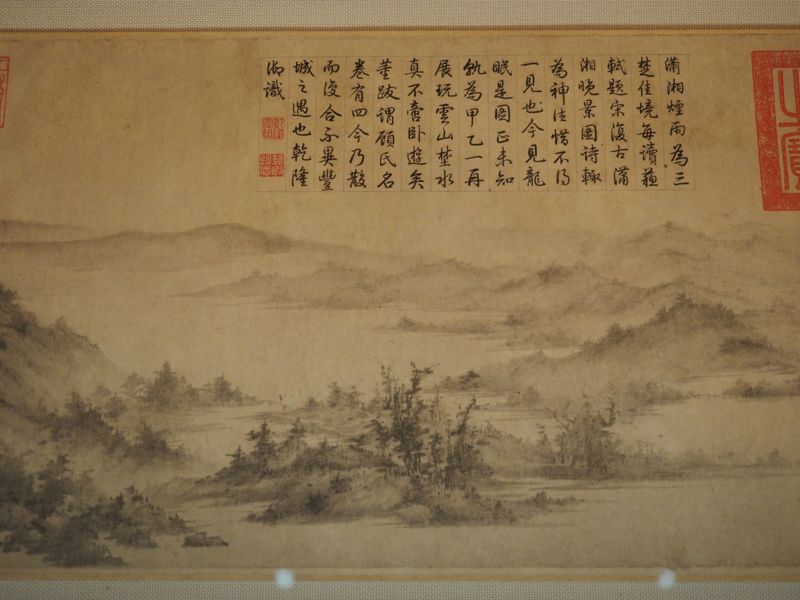 瀟湘煙雨為三
楚佳境每讀蘇
軾題宋復古瀟
湘晚景圖詩輒
為神往惜不得
一見也今見龍
眠是圖正未知
孰為甲乙一再
展玩雲山楚水
真不啻臥遊矣
董跋謂顧氏名
卷有四今乃散
而復合不異豐
城之遇也乾隆
御識
之寶